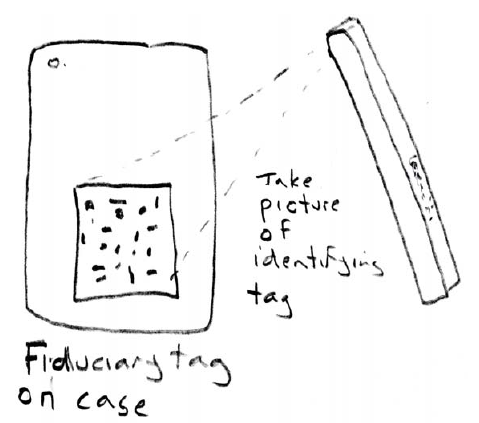 Take
picture
of
identifying
tag
Fiduciary tag
on case